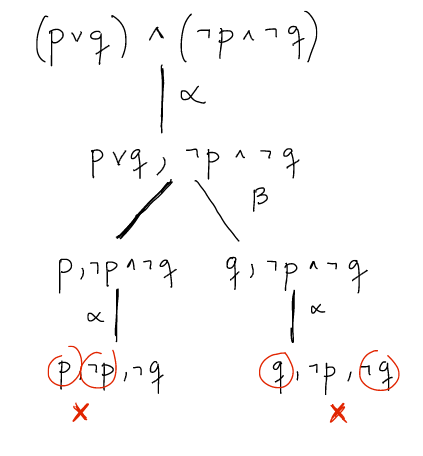 (p∨q) ∧ (¬p∧¬q)
α
p∨q, ¬p∧¬q
β
p,¬p∧¬q q,¬p∧¬q
α α
p,¬p,¬q q,¬p,¬q
× ×